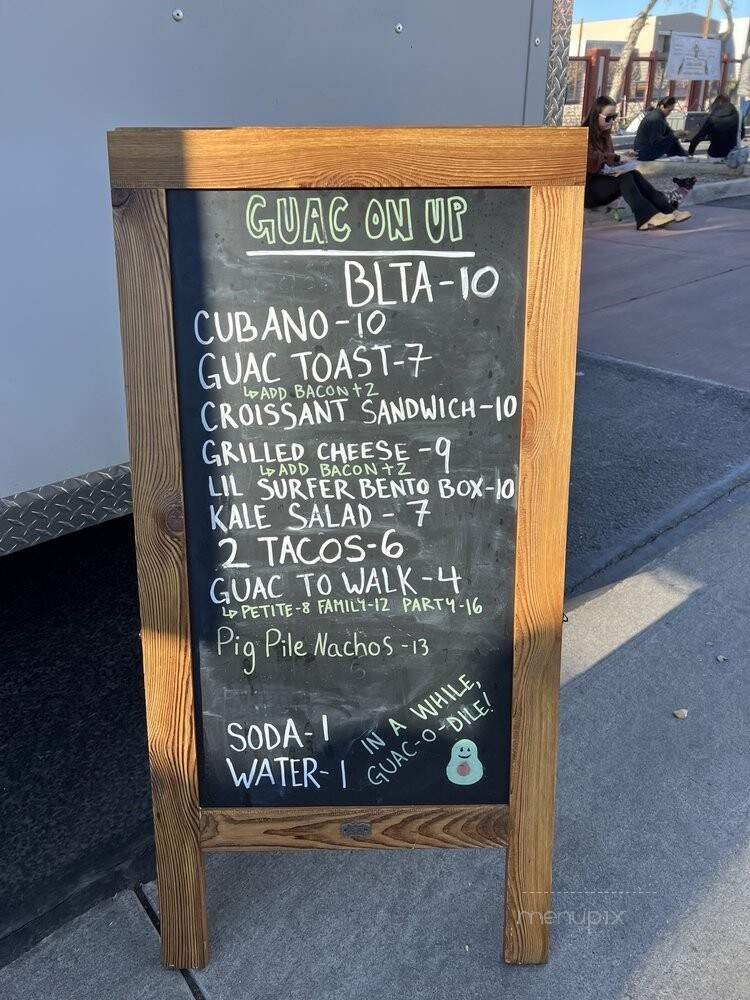 GUAC ON UP
BLTA-10
CUBANO-10
GUAC TOAST-7
↳ADD BACON+2
CROISSANT SANDWICH-10
GRILLED CHEESE-9
↳ADD BACON+2
LIL SURFER BENTO BOX-10
KALE SALAD-7
2 TACOS-6
GUAC TO WALK-4
↳PETITE-8 FAMILY-12 PARTY-16
Pig Pile Nachos-13
SODA-1
WATER-1
IN A WHILE,
GUAC-O-DILE!
menupix